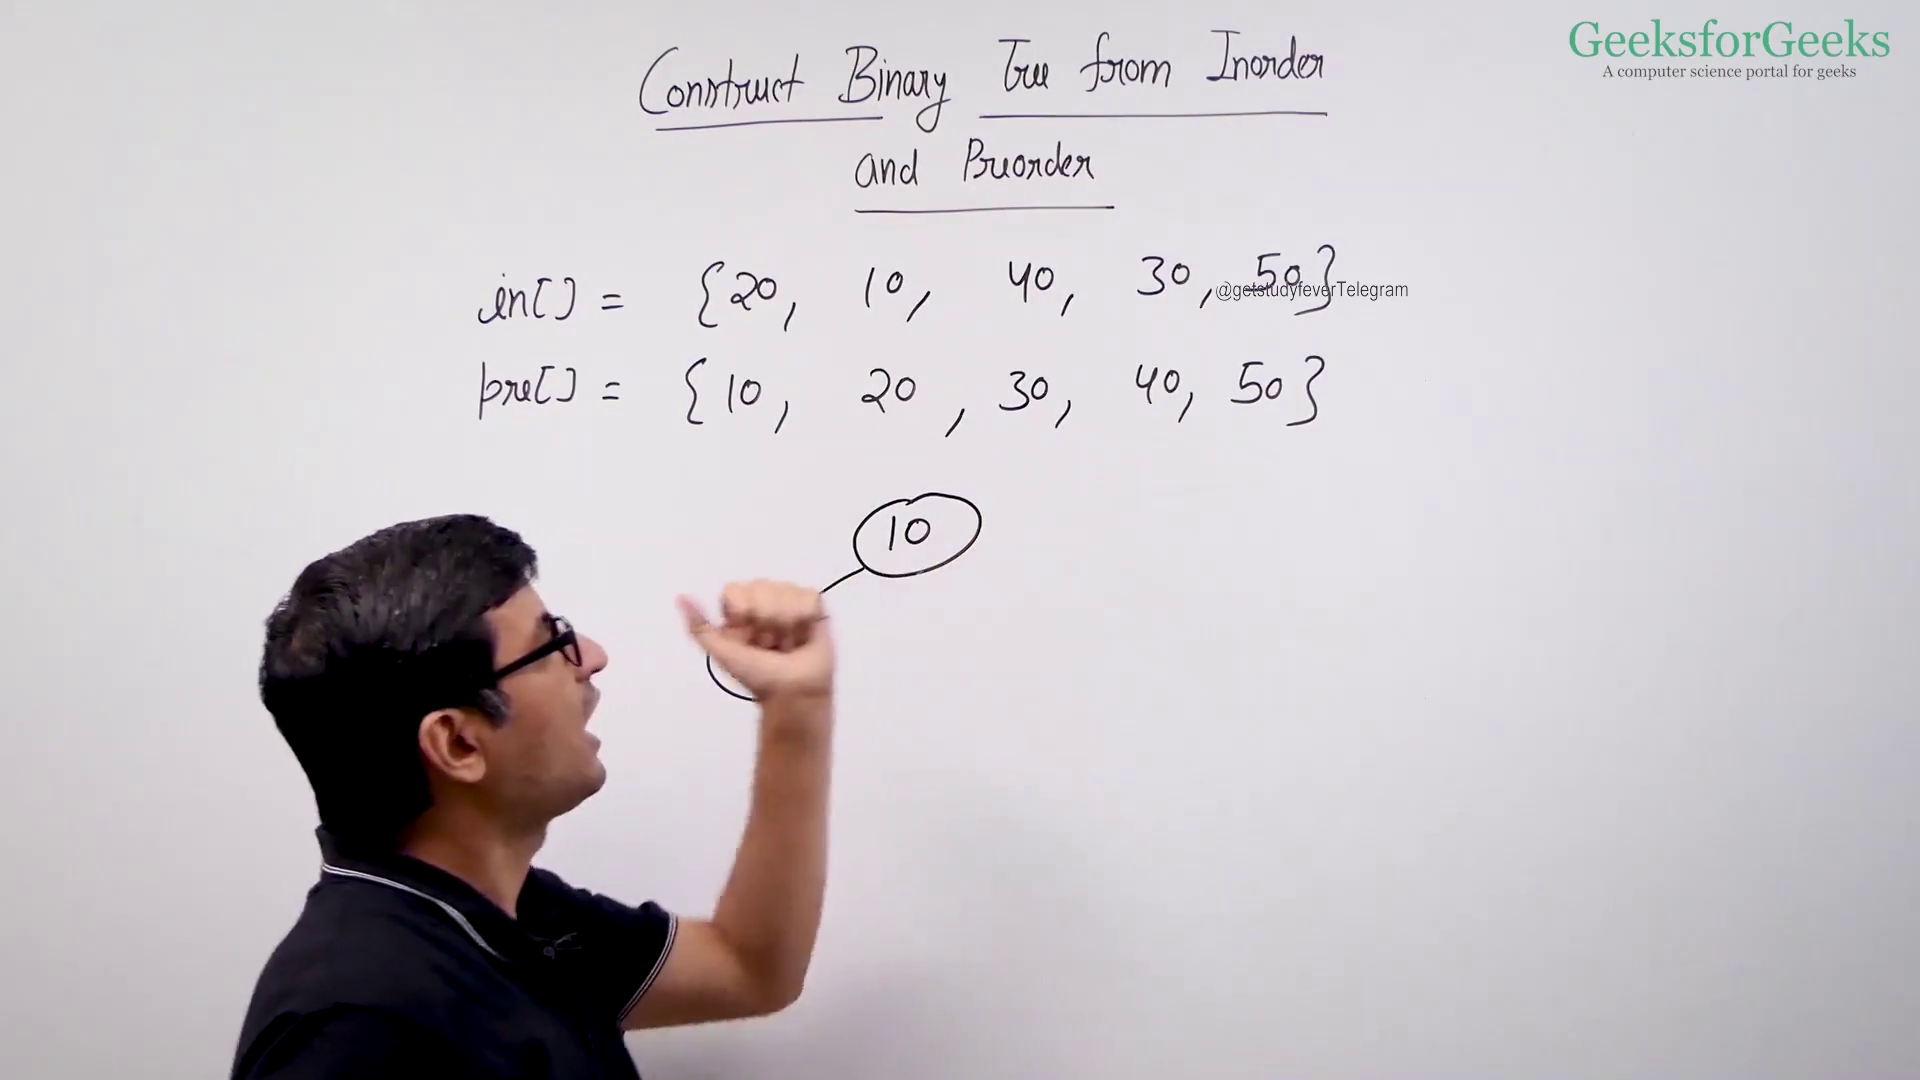 GeeksforGeeks
A computer science portal for geeks
Construct Binary Tree from Inorder
and Preorder
in[] = {20, 10, 40, 30, 50}
@getstudyfeverTelegram
pre[] = {10, 20, 30, 40, 50}
10